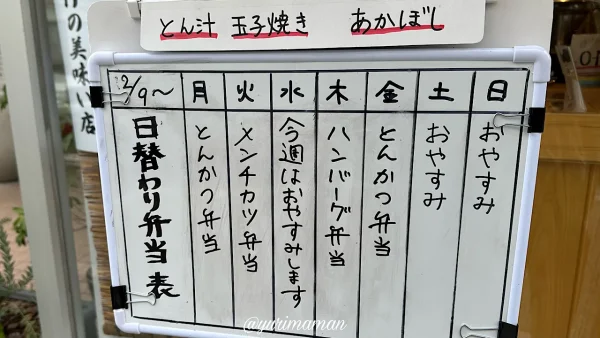 の美味い店
とん汁 玉子焼き あかぼし
12/9〜
月
火
水
木
金
土
日
日替わり弁当表
とんかつ弁当
メンチカツ弁当
今週はおやすみします
ハンバーグ弁当
とんかつ弁当
おやすみ
おやすみ
@yurimaman